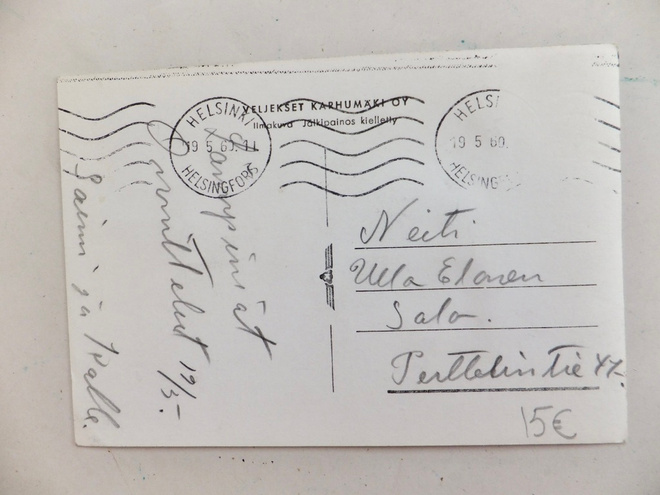 VELJEKSET KARHUMÄKI OY
Ilmakuva Jälkipainos kielletty
HELSINKI
19 5 60. 11
HELSINGFORS
HELSI
19 5 60.
HELSINGF
Lämpimät
Onnittelut 19/5.-
Saimi ja Kalle.
Neiti
Ulla Elonen
Salo.
Perttelintie 47.
15€